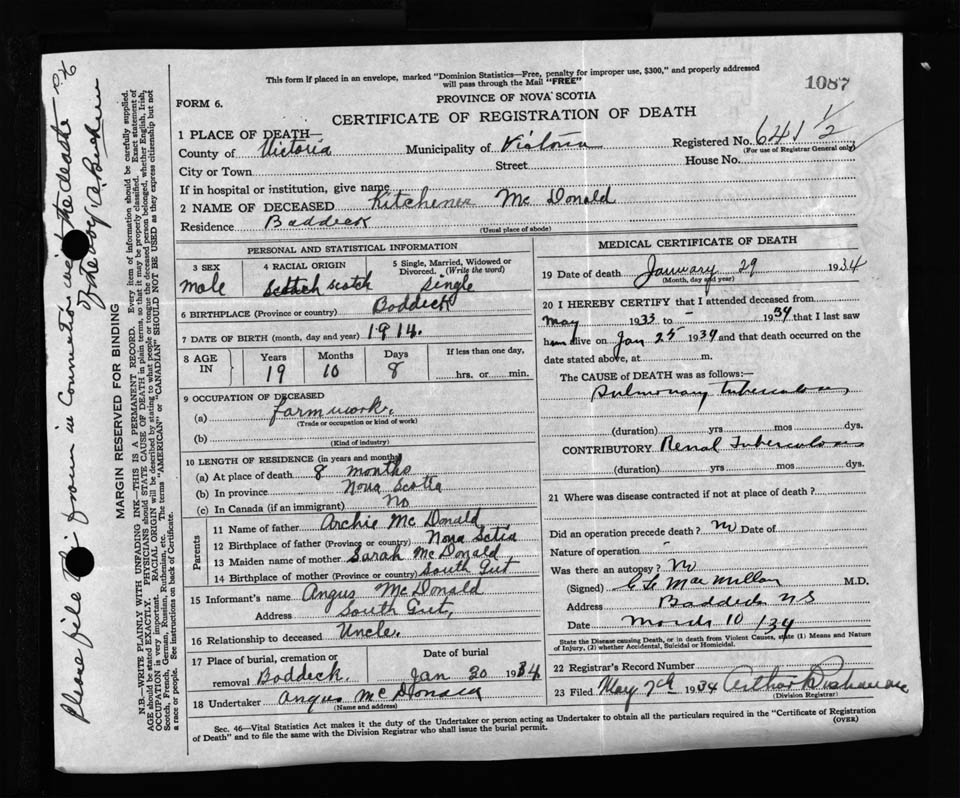 This form if placed in an envelope, marked "Dominion Statistics—Free, penalty for improper use, $300," and properly addressed
will pass through the Mail "FREE"
1087
FORM 6.
PROVINCE OF NOVA SCOTIA
CERTIFICATE OF REGISTRATION OF DEATH
1 PLACE OF DEATH—
Registered No. 641 1/2
County of Victoria Municipality of Victoria
(For use of Registrar General only)
City or Town Street House No.
If in hospital or institution, give name
2 NAME OF DECEASED Kitchener Mc Donald
Residence Baddeck
(Usual place of abode)
PERSONAL AND STATISTICAL INFORMATION
3 SEX 4 RACIAL ORIGIN 5 Single, Married, Widowed or
Divorced. (Write the word)
male Scotch scotch Single
6 BIRTHPLACE (Province or country) Baddeck
7 DATE OF BIRTH (month, day and year) 1914.
8 AGE IN Years Months Days If less than one day,
19 10 8 hrs. or min.
9 OCCUPATION OF DECEASED
(a) farm work.
(Trade or occupation or kind of work)
(b)
(Kind of industry)
10 LENGTH OF RESIDENCE (in years and months)
(a) At place of death 8 months
(b) In province Nova Scotia
(c) In Canada (if an immigrant) No
Parents
11 Name of father Archie Mc Donald
12 Birthplace of father (Province or country) Nova Sctia
13 Maiden name of mother Sarah Mc Donald
14 Birthplace of mother (Province or country) South Gut
15 Informant's name Angus McDonald
Address South Gut,
16 Relationship to deceased Uncle.
17 Place of burial, cremation or removal Baddeck. Date of burial Jan 30 1934
18 Undertaker Angus McDonald
(Name and address)
MEDICAL CERTIFICATE OF DEATH
19 Date of death January 29 1934
(Month, day and year)
20 I HEREBY CERTIFY that I attended deceased from
May 1933 to – 1934 that I last saw
him alive on Jan 25 1934 and that death occurred on the
date stated above, at m.
The CAUSE of DEATH was as follows:—
Pulmonary tuberculosis,
(duration) yrs mos dys.
CONTRIBUTORY Renal Tuberculosis
(duration) yrs mos dys.
21 Where was disease contracted if not at place of death?
Did an operation precede death? No Date of
Nature of operation –
Was there an autopsy? No
(Signed) MacMillan M.D.
Address Baddeck NS
Date March 10 /34
State the Disease causing Death, or in death from Violent Causes, state (1) Means and Nature
of Injury, (2) whether Accidental, Suicidal or Homicidal.
22 Registrar's Record Number
23 Filed May 7th 1934 Arthur
(Division Registrar)
Sec. 46—Vital Statistics Act makes it the duty of the Undertaker or person acting as Undertaker to obtain all the particulars required in the "Certificate of Registration
of Death" and to file the same with the Division Registrar who shall issue the burial permit.
(OVER)
MARGIN RESERVED FOR BINDING
N.B.—WRITE PLAINLY WITH UNFADING INK—THIS IS A PERMANENT RECORD. Every item of information should be carefully supplied.
AGE should be stated EXACTLY. PHYSICIANS should STATE CAUSE OF DEATH in plain terms, so that it may be properly classified. Exact statement of
OCCUPATION is very important. RACIAL ORIGIN will be described by stating to what people or tongue the deceased person belonged, whether English, Irish,
Scotch, French, German, Russian, Ruthenian, etc. The terms "AMERICAN" or "CANADIAN" SHOULD NOT BE USED as they express citizenship but not
a race or people. See instructions on back of Certificate.
Please file in the death
of